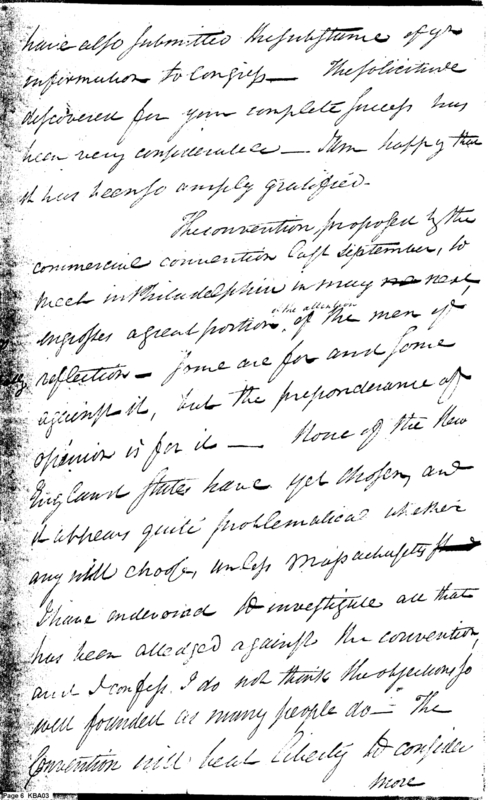 have also submitted the substance of yr
information to Congress — The solicitude
discovered for your complete success has
been very considerable — I am happy that
it has been so amply gratified.
The convention, proposed by the
commercial convention last september, to
meet in Philadelphia in may next,
engrosses a great portion of the men of
the attention
reflection — Some are for and some
against it, but the preponderance of
opinion is for it — None of the New
England states have yet chosen, and
it appears quite problematical whether
any will choose, unless Massachusetts
I have endevored to investigate all that
has been alledged against the convention,
and I confess I do not think the objections so
well founded as many people do — The
Convention will be at liberty to consider
more
Page 6 KBA03